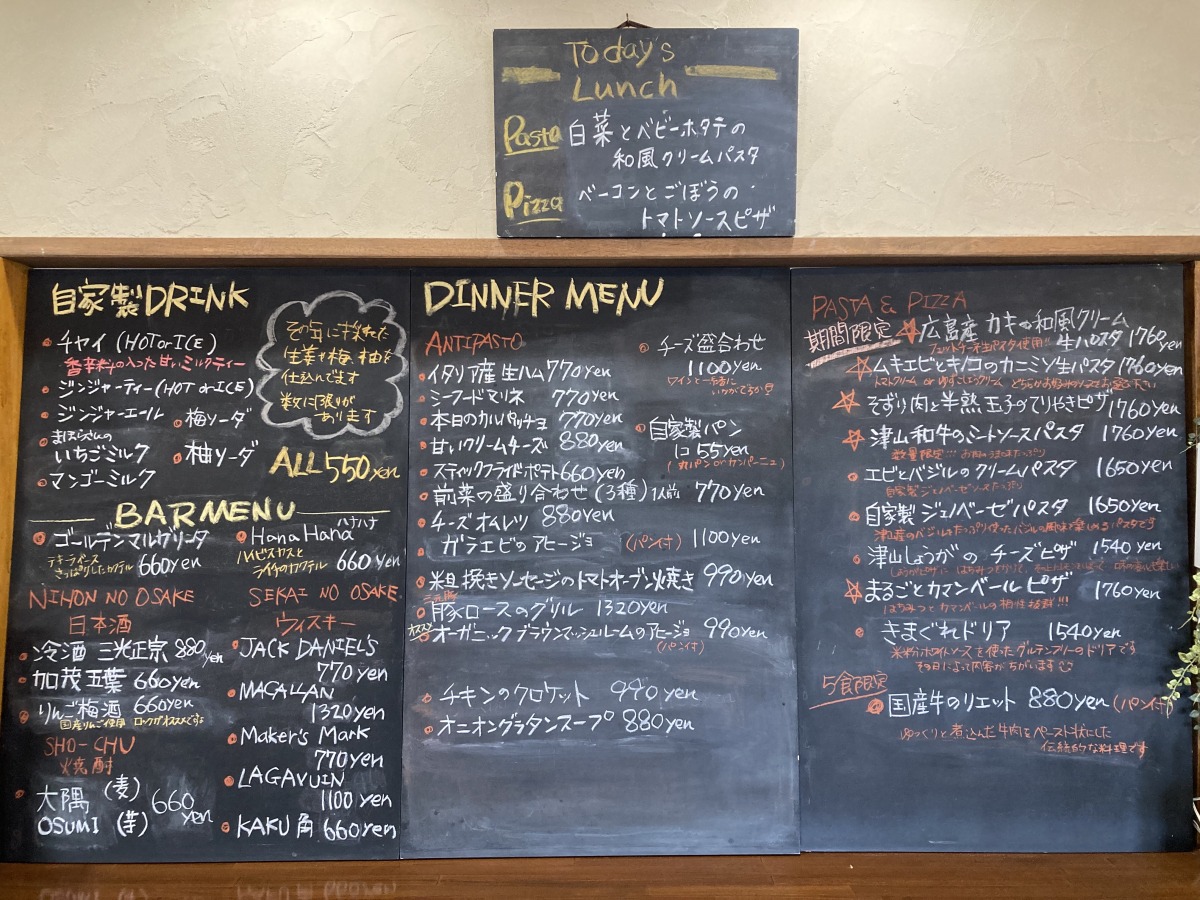 Today's
Lunch
Pasta 白菜とベビーホタテの
和風クリームパスタ
Pizza ベーコンとごぼうの
トマトソースピザ
自家製DRINK
チャイ (HOT or ICE)
香辛料の入った甘いミルクティー
ジンジャーティー (HOT or ICE)
ジンジャーエール
梅ソーダ
いちごミルク
柚ソーダ
マンゴーミルク
その年に採れた
生姜や梅、柚を
仕込んでます
数に限りが
あります
ALL 550yen
BAR MENU
ゴールデンマルガリータ
テキーラベース
さっぱりしたカクテル 660yen
Hana Hana
ハナハナ
ハイビスカスと
ライチのカクテル 660yen
NIHON NO OSAKE
日本酒
冷酒 三光正宗 880yen
加茂五葉 660yen
りんご梅酒 660yen
国産りんご使用 ロックがおススメですよ
SHO-CHU
焼酎
大隅 (麦) 660yen
OSUMI (芋)
SEKAI NO OSAKE
ウィスキー
JACK DANIEL'S
770yen
MACALLAN
1320yen
Maker's Mark
770yen
LAGAVUIN
1100yen
KAKU 角 660yen
DINNER MENU
ANTIPASTO
イタリア産 生ハム 770yen
シーフードマリネ 770yen
本日のカルパッチョ 770yen
甘いクリームチーズ 880yen
スティックフライドポテト 660yen
前菜の盛り合わせ (3種) 1人前 770yen
チーズオムレツ 880yen
ガラエビのアヒージョ (パン付) 1100yen
粗挽きソーセージのトマトオーブン焼き 990yen
豚ロースのグリル 1320yen
オススメ オーガニックブラウンマッシュルームのアヒージョ 990yen
(パン付)
チキンのクロケット 990yen
オニオングラタンスープ 880yen
チーズ盛合わせ
1100yen
ワインと一緒に
いかがでろか
自家製パン
1コ 55yen
(丸パン or カンパーニュ)
PASTA & PIZZA
期間限定 広島産カキの和風クリーム
生パスタ 1760yen
フェットチーネ生パスタ使用!!
ムキエビとキノコのカニミソ生パスタ 1760yen
そずり肉と半熟玉子のてりやきピザ 1760yen
津山和牛のミートソースパスタ 1760yen
エビとバジルのクリームパスタ 1650yen
自家製ジェノベーゼソースたっぷり
自家製 ジェノベーゼパスタ 1650yen
津山産のバジルをたっぷり使ったバジルの風味を楽しめるパスタです
津山しょうがの チーズピザ 1540yen
まるごとカマンベールピザ 1760yen
はちみつとカマンベールの相性抜群!!!
きまぐれドリア 1540yen
米粉ホワイトソースを使ったグルテンフリーのドリアです
その日によって内容がちがいます
5食限定
国産牛のリエット 880yen (パン付)
ゆっくりと煮込んだ牛肉をペースト状にした
伝統的な料理です